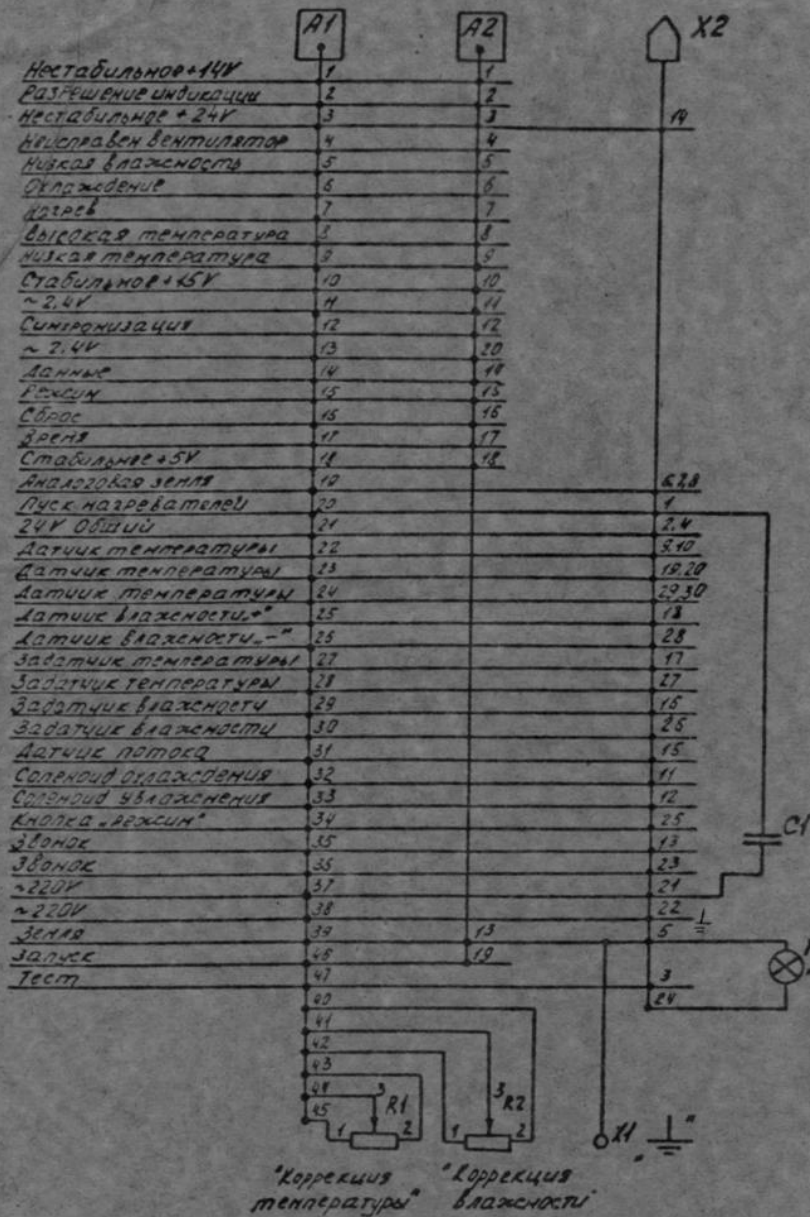 A1 A2 X2
Нестабильное+14V 1 1
Разрешение индикации 2 2
Нестабильное +24V 3 3 14
Неисправен вентилятор 4 4
Низкая влажность 5 5
Охлаждение 6 6
Нагрев 7 7
Высокая температура 8 8
Низкая температура 9 9
Стабильное+15V 10 10
~2,4V 11 11
Синхронизация 12 12
~2,4V 13 20
Данные 14 14
Режим 15 15
Сброс 16 16
Время 17 17
Стабильное+5V 18 18
Аналоговая земля 19
Пуск нагревателей 20 1
24V Общий 21 2,4
Датчик температуры 22 9,10
Датчик температуры 23 19,20
Датчик температуры 24 29,30
Датчик влажности„+" 25 18
Датчик влажности„-" 26 28
Задатчик температуры 27 17
Задатчик температуры 28 27
Задатчик влажности 29
Задатчик влажности 30
Датчик потока 31 15
Соленоид охлаждения 32 11
Соленоид увлажнения 33 12
Кнопка „Режим" 34 25
Звонок 35 13
Звонок 36 23
~220V 37 21
~220V 38 22
Земля 39 13 5
Запуск 46 19
Тест 47 3
24
C1
40
41
42
43
44 3 R1 3 R2
45 1 2 1 2 X1 " "
"Коррекция температуры"
"Коррекция влажности"